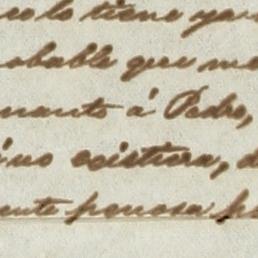 lo tiene ya
obable que me
uanto á Pedro,
no existiera, d
ente penosa p